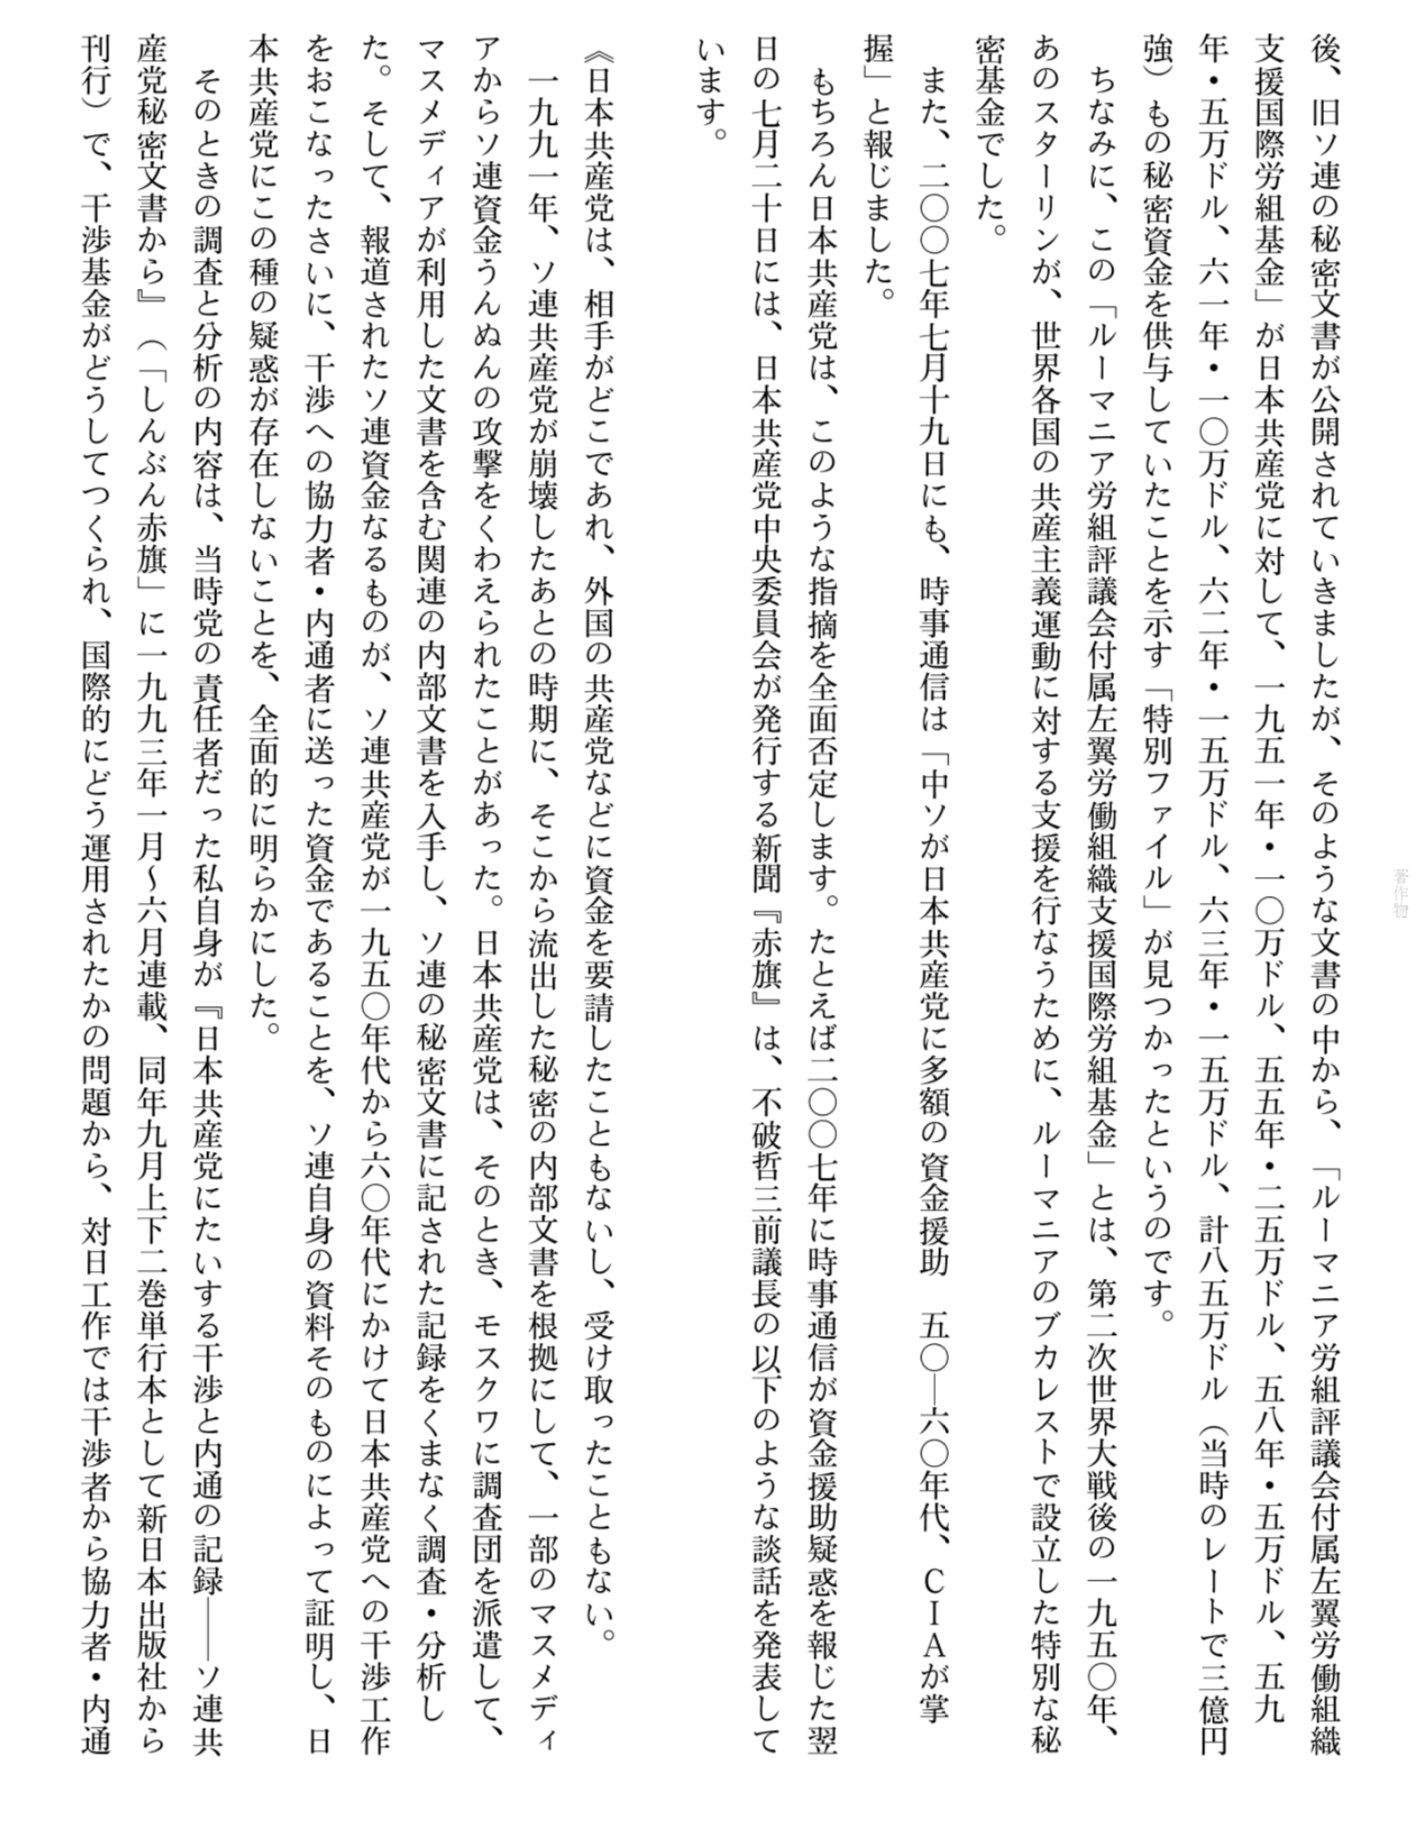 後、旧ソ連の秘密文書が公開されていきましたが、そのような文書の中から、「ルーマニア労組評議会付属左翼労働組織
支援国際労組基金」が日本共産党に対して、一九五一年・一〇万ドル、五五年・二五万ドル、五八年・五万ドル、五九
年・五万ドル、六一年・一〇万ドル、六二年・一五万ドル、六三年・一五万ドル、計八五万ドル（当時のレートで三億円
強）もの秘密資金を供与していたことを示す「特別ファイル」が見つかったというのです。
ちなみに、この「ルーマニア労組評議会付属左翼労働組織支援国際労組基金」とは、第二次世界大戦後の一九五〇年、
あのスターリンが、世界各国の共産主義運動に対する支援を行なうために、ルーマニアのブカレストで設立した特別な秘
密基金でした。
また、二〇〇七年七月十九日にも、時事通信は「中ソが日本共産党に多額の資金援助　五〇―六〇年代、ＣＩＡが掌
握」と報じました。
もちろん日本共産党は、このような指摘を全面否定します。たとえば二〇〇七年に時事通信が資金援助疑惑を報じた翌
日の七月二十日には、日本共産党中央委員会が発行する新聞『赤旗』は、不破哲三前議長の以下のような談話を発表して
います。
《日本共産党は、相手がどこであれ、外国の共産党などに資金を要請したこともないし、受け取ったこともない。
一九九一年、ソ連共産党が崩壊したあとの時期に、そこから流出した秘密の内部文書を根拠にして、一部のマスメディ
アからソ連資金うんぬんの攻撃をくわえられたことがあった。日本共産党は、そのとき、モスクワに調査団を派遣して、
マスメディアが利用した文書を含む関連の内部文書を入手し、ソ連の秘密文書に記された記録をくまなく調査・分析し
た。そして、報道されたソ連資金なるものが、ソ連共産党が一九五〇年代から六〇年代にかけて日本共産党への干渉工作
をおこなったさいに、干渉への協力者・内通者に送った資金であることを、ソ連自身の資料そのものによって証明し、日
本共産党にこの種の疑惑が存在しないことを、全面的に明らかにした。
そのときの調査と分析の内容は、当時党の責任者だった私自身が『日本共産党にたいする干渉と内通の記録――ソ連共
産党秘密文書から』（「しんぶん赤旗」に一九九三年一月～六月連載、同年九月上下二巻単行本として新日本出版社から
刊行）で、干渉基金がどうしてつくられ、国際的にどう運用されたかの問題から、対日工作では干渉者から協力者・内通
著作物